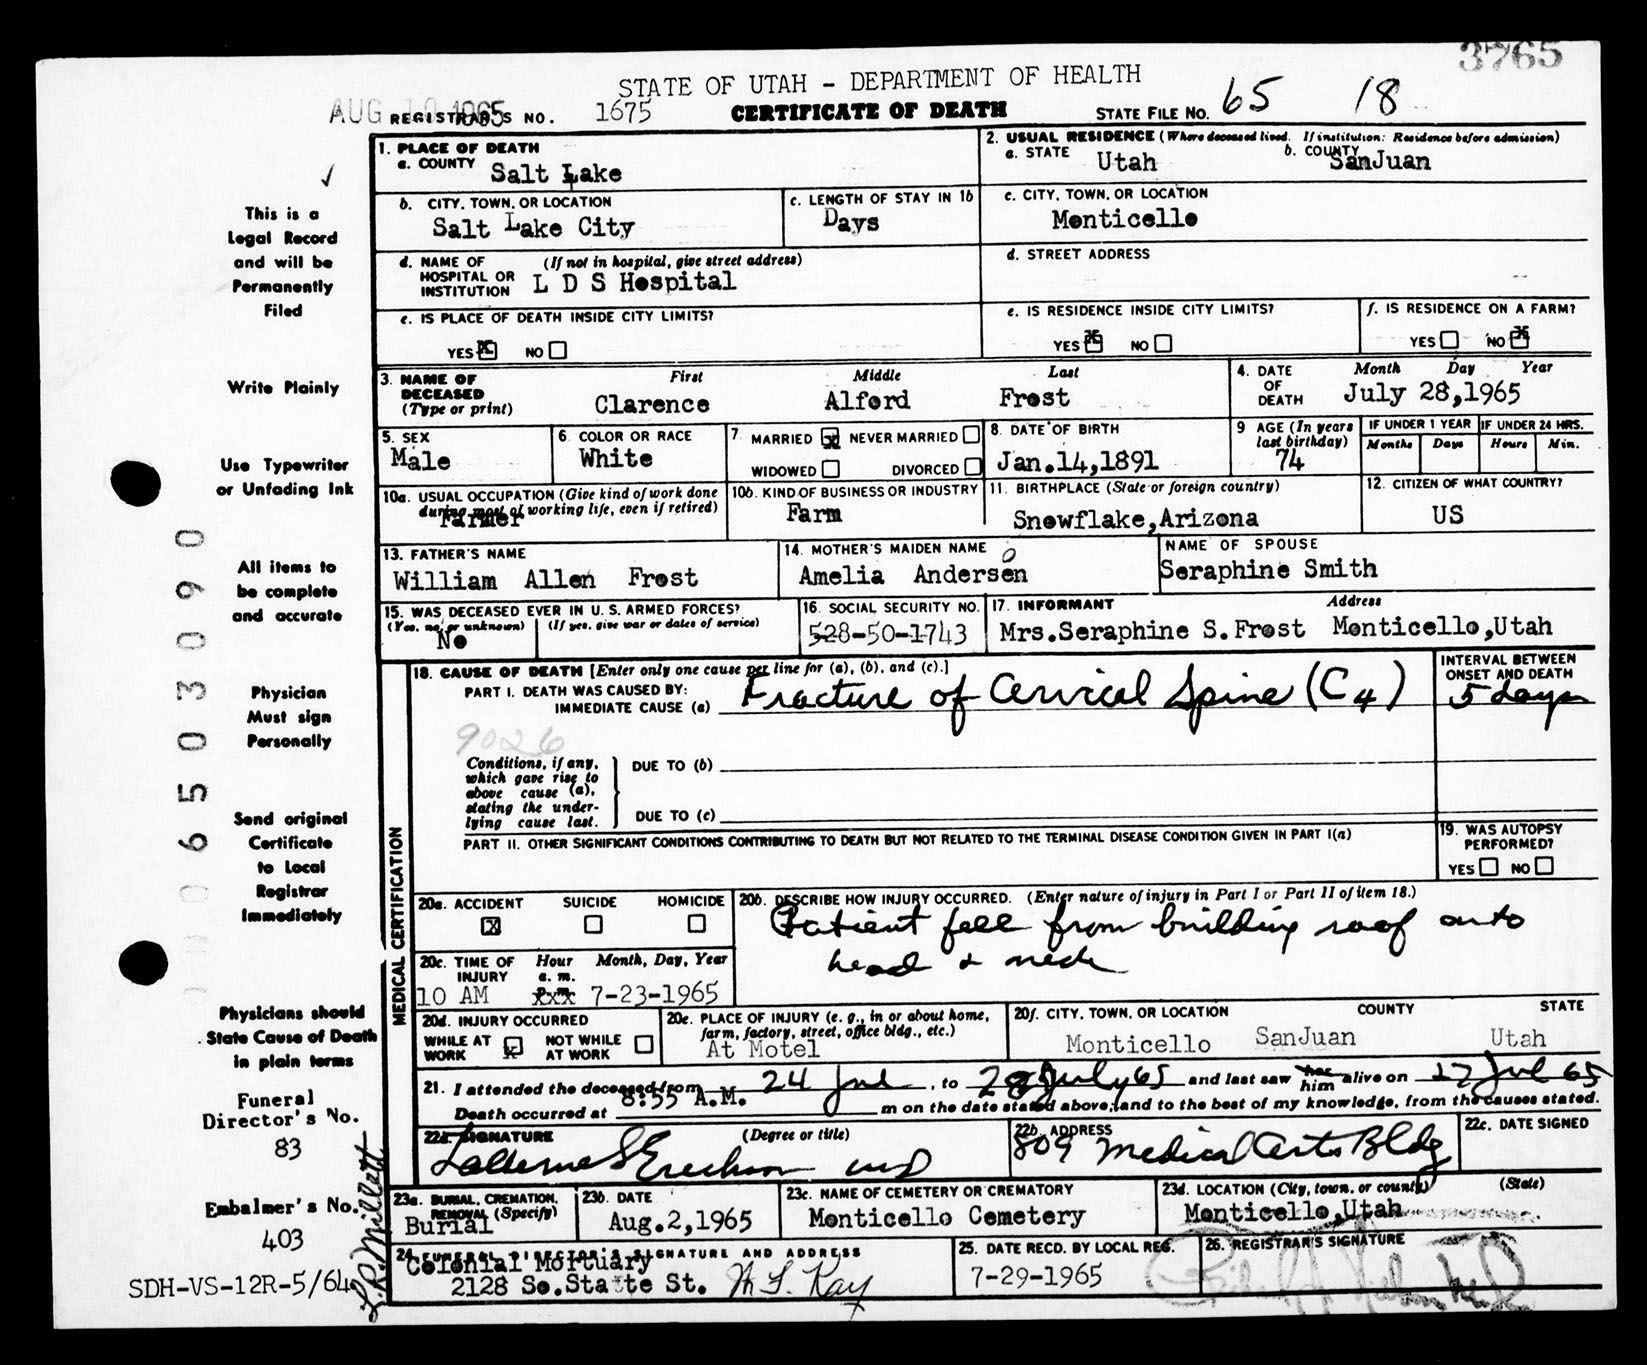 3765
STATE OF UTAH - DEPARTMENT OF HEALTH
AUG 10 1965 REGISTRAR'S NO. 1675 CERTIFICATE OF DEATH STATE FILE NO. 65 18
This is a
Legal Record
and will be
Permanently
Filed
Write Plainly
Use Typewriter
or Unfading Ink
All items to
be complete
and accurate
Physician
Must sign
Personally
Send original
Certificate
to Local
Registrar
Immediately
Physicians should
State Cause of Death
in plain terms
Funeral
Director's No.
83
Embalmer's No.
403
SDH-VS-12R-5/64
L.R. Millett
06503090
1. PLACE OF DEATH
a. COUNTY Salt Lake
2. USUAL RESIDENCE (Where deceased lived. If institution: Residence before admission)
a. STATE Utah b. COUNTY SanJuan
b. CITY, TOWN, OR LOCATION
Salt Lake City
c. LENGTH OF STAY IN 1b
Days
c. CITY, TOWN, OR LOCATION
Monticello
d. NAME OF (If not in hospital, give street address)
HOSPITAL OR
INSTITUTION L D S Hospital
d. STREET ADDRESS
--
e. IS PLACE OF DEATH INSIDE CITY LIMITS?
YES X NO
e. IS RESIDENCE INSIDE CITY LIMITS?
YES X NO
f. IS RESIDENCE ON A FARM?
YES NO X
3. NAME OF First Middle Last
DECEASED
(Type or print) Clarence Alford Frost
4. DATE Month Day Year
OF
DEATH July 28,1965
5. SEX
Male
6. COLOR OR RACE
White
7. MARRIED X NEVER MARRIED
WIDOWED DIVORCED
8. DATE OF BIRTH
Jan.14,1891
9 AGE (In years
last birthday)
74
IF UNDER 1 YEAR IF UNDER 24 HRS.
Months Days Hours Min.
10a. USUAL OCCUPATION (Give kind of work done
during most of working life, even if retired)
Farmer
10b. KIND OF BUSINESS OR INDUSTRY
Farm
11. BIRTHPLACE (State or foreign country)
Snowflake,Arizona
12. CITIZEN OF WHAT COUNTRY?
US
13. FATHER'S NAME
William Allen Frost
14. MOTHER'S MAIDEN NAME
o
Amelia Andersen
NAME OF SPOUSE
Seraphine Smith
15. WAS DECEASED EVER IN U.S. ARMED FORCES?
(Yes, no, or unknown) (If yes, give war or dates of service)
No
16. SOCIAL SECURITY NO.
528-50-1743
17. INFORMANT Address
Mrs.Seraphine S.Frost Monticello,Utah
MEDICAL CERTIFICATION
18. CAUSE OF DEATH [Enter only one cause per line for (a), (b), and (c).]
PART I. DEATH WAS CAUSED BY:
IMMEDIATE CAUSE (a) Fracture of Cervical Spine (C4)
INTERVAL BETWEEN
ONSET AND DEATH
5 days
9026
Conditions, if any,
which gave rise to
above cause (a),
stating the under-
lying cause last.
DUE TO (b)
DUE TO (c)
PART II. OTHER SIGNIFICANT CONDITIONS CONTRIBUTING TO DEATH BUT NOT RELATED TO THE TERMINAL DISEASE CONDITION GIVEN IN PART I(a)
19. WAS AUTOPSY
PERFORMED?
YES NO
20a. ACCIDENT SUICIDE HOMICIDE
X
20b. DESCRIBE HOW INJURY OCCURRED. (Enter nature of injury in Part I or Part II of item 18.)
Patient fell from building roof onto
head & neck
20c. TIME OF Hour Month, Day, Year
INJURY a. m.
10 AM p.m. 7-23-1965
20d. INJURY OCCURRED
WHILE AT X NOT WHILE
WORK AT WORK
20e. PLACE OF INJURY (e. g., in or about home,
farm, factory, street, office bldg., etc.)
At Motel
20f. CITY, TOWN, OR LOCATION COUNTY STATE
Monticello SanJuan Utah
21. I attended the deceased from 24 Jul, to 28 July 65 and last saw her him alive on 27 Jul 65
Death occurred at 8:55 A.M. m on the date stated above; and to the best of my knowledge, from the causes stated.
22a. SIGNATURE (Degree or title)
LaVerne S Erickson MD
22b. ADDRESS
809 Medical Arts Bldg
22c. DATE SIGNED
23a. BURIAL, CREMATION,
REMOVAL (Specify)
Burial
23b. DATE
Aug.2,1965
23c. NAME OF CEMETERY OR CREMATORY
Monticello Cemetery
23d. LOCATION (City, town, or county) (State)
Monticello,Utah
24. FUNERAL DIRECTOR'S SIGNATURE AND ADDRESS
Colonial Mortuary
2128 So.State St.
25. DATE RECD. BY LOCAL REG.
7-29-1965
26. REGISTRAR'S SIGNATURE